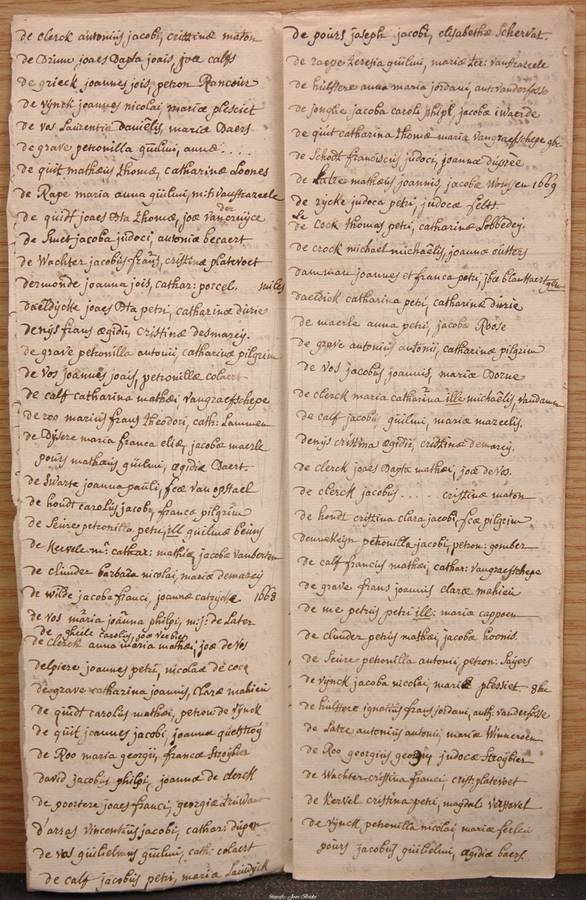 de clerck antonius jacobi, cristinæ maton
de Brune joaes Bapta joais, joæ calfs
de grieck joannes jois, petron Rancoir
de vynck joannes nicolai mariæ plesciet
de vos Laurentia danielis, mariæ Baers
de grave petronilla guilmi, annæ ....
de quit matheus thomæ, catharinæ Loones
de Rape maria anna guilmi, m: t: vanstrazeele
de quidt joaes Bta thomæ, joæ van cruyce
der
de Smet jacoba judoci, antoniæ becaert
de Wachter jacobus frans, cristinæ platevoet
dermonde joanna jois, cathar: porcel. miles
daeldycke joaes Bta petri, catharinæ durie
denys frans ægidii, cristinæ desmarey.
de grave petronilla antonii, catharinæ pilgrim
de vos joannes joais, petronillæ colaert
de calf catharina mathei, vangraefschepe
de roo marius frans theodori, cath: Lammen
de Dysere maria franca eliæ, jacobæ maerle
pours matheus guilmi, ægidiæ Baert.
de swarte joanna pauli, fcæ van opstael
de hondt carolus jacobi, francæ pilgrim
de Seure petronilla petri, ill guilmæ beuns
de Kervele m: cathar: mathiæ, jacobæ
de clinder barbara nicolai, mariæ demarey
de wilde jacoba franci, joannæ 1668
de vos maria joanna philpi, m: j: de Later
de carolus, joæ
de clerck anna maria mathei, joæ de vos
delpiere joannes petri, nicolaæ de cocq
de grave catharina joannis, claræ mahieu
de quidt carolus mathei, petron de vynck
de quit joannes jacobi, joannæ questroy
de Roo maria georgii, francæ stroybier
david jacobus philpi, joannæ de clerck
de poortere joaes franci, georgiæ
d'arras vincentius jacobi, cathar:
de vos guilielmus guilmi, cath: colaert
de calf jacobus petri, maria Lauwyck
de pours joseph jacobi, elisabethæ Schervat.
de raepe teresia guilmi, mariæ ter: vanstrazeele
de hulstere anna maria jordani, ant: vandorpsse
de jonghe jacoba caroli phipl, jacobæ iwaerde
de quit catharina thomæ maria vangraefschepe ghe
de Schodt franciscus judoci, joannæ dussee
de Latre matheus joannis, jacobæ 1669
de rycke judoca petri, judocæ
de Cock thomas petri, catharinæ Lobbedey.
de crock michael michaelis, joannæ outters
dammau joannes et franca petri, jbæ blanckaert
daeldick catharina petri, catharinæ durie
de maerle anna petri, jacobæ Roose
de grave antonius antonii, catharinæ pilgrim
de vos jacobus joannis, mariæ Borne
de clerck maria catharina ille michaelis, vandamme
de calf jacobus guilmi, mariæ marcelis.
denys cristina ægidii, cristinæ demarey.
de clerck joaes Bapta mathei, joæ de vos.
de clerck jacobus .... cristinæ maton
de hondt cristina clara jacobi, fcæ pilgrim
petronilla jacobi, petron: gomber
de calf francius mathei, cathar: vangraefschepe
de grave frans joannis claræ mahieu
de me petrus petri ill: mariæ cappoen
de clinder petrus mathei jacobæ Coonis.
de Seure petronilla antonii, petron: Saijers
de vynck jacoba nicolai, mariæ plessiet
de hulstere ignatius frans jordani, anth: vanderfosse
de Latre antonius antonii mariæ Winnezeen
de Roo georgius georgii judocæ stroybier
de Wachter cristina franci, crist: platevoet
de Kervel cristina petri, magdal:
de vynck petronilla nicolai mariæ ferlin
pours jacobus guilielmi, ægidiæ baert.